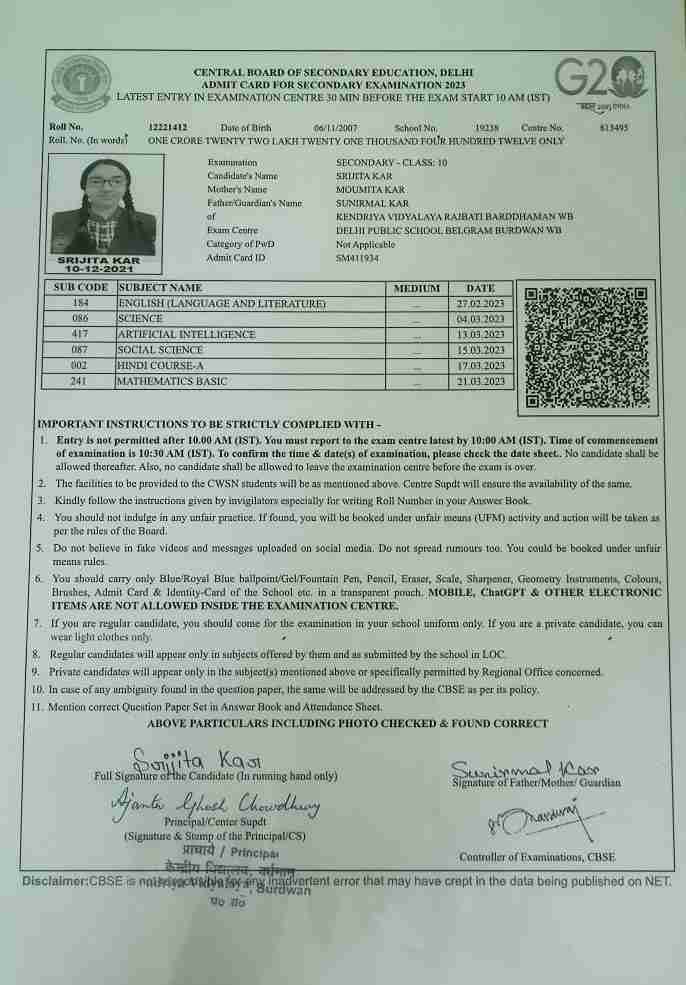 CENTRAL BOARD OF SECONDARY EDUCATION, DELHI
ADMIT CARD FOR SECONDARY EXAMINATION 2023
LATEST ENTRY IN EXAMINATION CENTRE 30 MIN BEFORE THE EXAM START 10 AM (IST)
G20
Roll No. 12221412 Date of Birth 06/11/2007 School No. 19238 Centre No. 813495
Roll. No. (In words) ONE CRORE TWENTY TWO LAKH TWENTY ONE THOUSAND FOUR HUNDRED TWELVE ONLY
Examination SECONDARY - CLASS: 10
Candidate's Name SRIJITA KAR
Mother's Name MOUMITA KAR
Father/Guardian's Name SUNIRMAL KAR
of KENDRIYA VIDYALAYA RAJBATI BARDDHAMAN WB
Exam Centre DELHI PUBLIC SCHOOL BELGRAM BURDWAN WB
Category of PwD Not Applicable
Admit Card ID SM411934
SRIJITA KAR
10-12-2021
SUB CODE SUBJECT NAME MEDIUM DATE
184 ENGLISH (LANGUAGE AND LITERATURE) ... 27.02.2023
086 SCIENCE ... 04.03.2023
417 ARTIFICIAL INTELLIGENCE ... 13.03.2023
087 SOCIAL SCIENCE ... 15.03.2023
002 HINDI COURSE-A ... 17.03.2023
241 MATHEMATICS BASIC ... 21.03.2023
IMPORTANT INSTRUCTIONS TO BE STRICTLY COMPLIED WITH -
1. Entry is not permitted after 10.00 AM (IST). You must report to the exam centre latest by 10:00 AM (IST). Time of commencement
of examination is 10:30 AM (IST). To confirm the time & date(s) of examination, please check the date sheet.. No candidate shall be
allowed thereafter. Also, no candidate shall be allowed to leave the examination centre before the exam is over.
2. The facilities to be provided to the CWSN students will be as mentioned above. Centre Supdt will ensure the availability of the same.
3. Kindly follow the instructions given by invigilators especially for writing Roll Number in your Answer Book.
4. You should not indulge in any unfair practice. If found, you will be booked under unfair means (UFM) activity and action will be taken as
per the rules of the Board.
5. Do not believe in fake videos and messages uploaded on social media. Do not spread rumours too. You could be booked under unfair
means rules.
6. You should carry only Blue/Royal Blue ballpoint/Gel/Fountain Pen, Pencil, Eraser, Scale, Sharpener, Geometry Instruments, Colours,
Brushes, Admit Card & Identity-Card of the School etc. in a transparent pouch. MOBILE, ChatGPT & OTHER ELECTRONIC
ITEMS ARE NOT ALLOWED INSIDE THE EXAMINATION CENTRE.
7. If you are regular candidate, you should come for the examination in your school uniform only. If you are a private candidate, you can
wear light clothes only.
8. Regular candidates will appear only in subjects offered by them and as submitted by the school in LOC.
9. Private candidates will appear only in the subject(s) mentioned above or specifically permitted by Regional Office concerned.
10. In case of any ambiguity found in the question paper, the same will be addressed by the CBSE as per its policy.
11. Mention correct Question Paper Set in Answer Book and Attendance Sheet.
ABOVE PARTICULARS INCLUDING PHOTO CHECKED & FOUND CORRECT
Srijita Kar
Full Signature of the Candidate (In running hand only)
Sunirmal Kar
Signature of Father/Mother/ Guardian
Ajanta Ghosh Chowdhury
Principal/Center Supdt
(Signature & Stamp of the Principal/CS)
Controller of Examinations, CBSE
प्राचार्य / Principal
केन्द्रीय विद्यालय, बर्धमान
Vidyalaya, Burdwan
Disclaimer:CBSE is not responsible for any inadvertent error that may have crept in the data being published on NET.